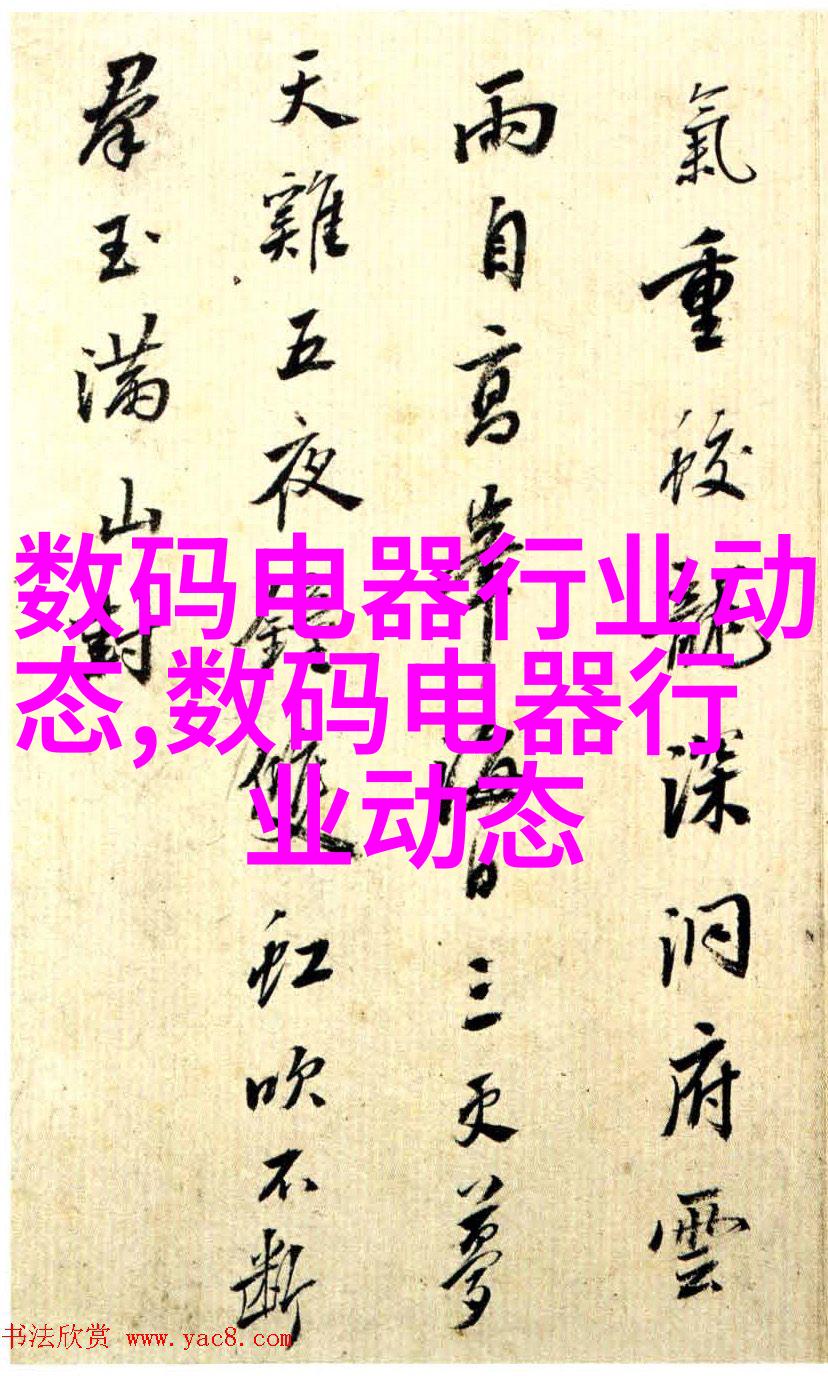 氣重蛟龍深洞府雲
雨自高峯海日三更夢
天雞五夜鐘雙虹吹不斷
羣玉滿山封
数码电器行业动
态,数码电器行
业动态
书法欣赏 www.yac8.com